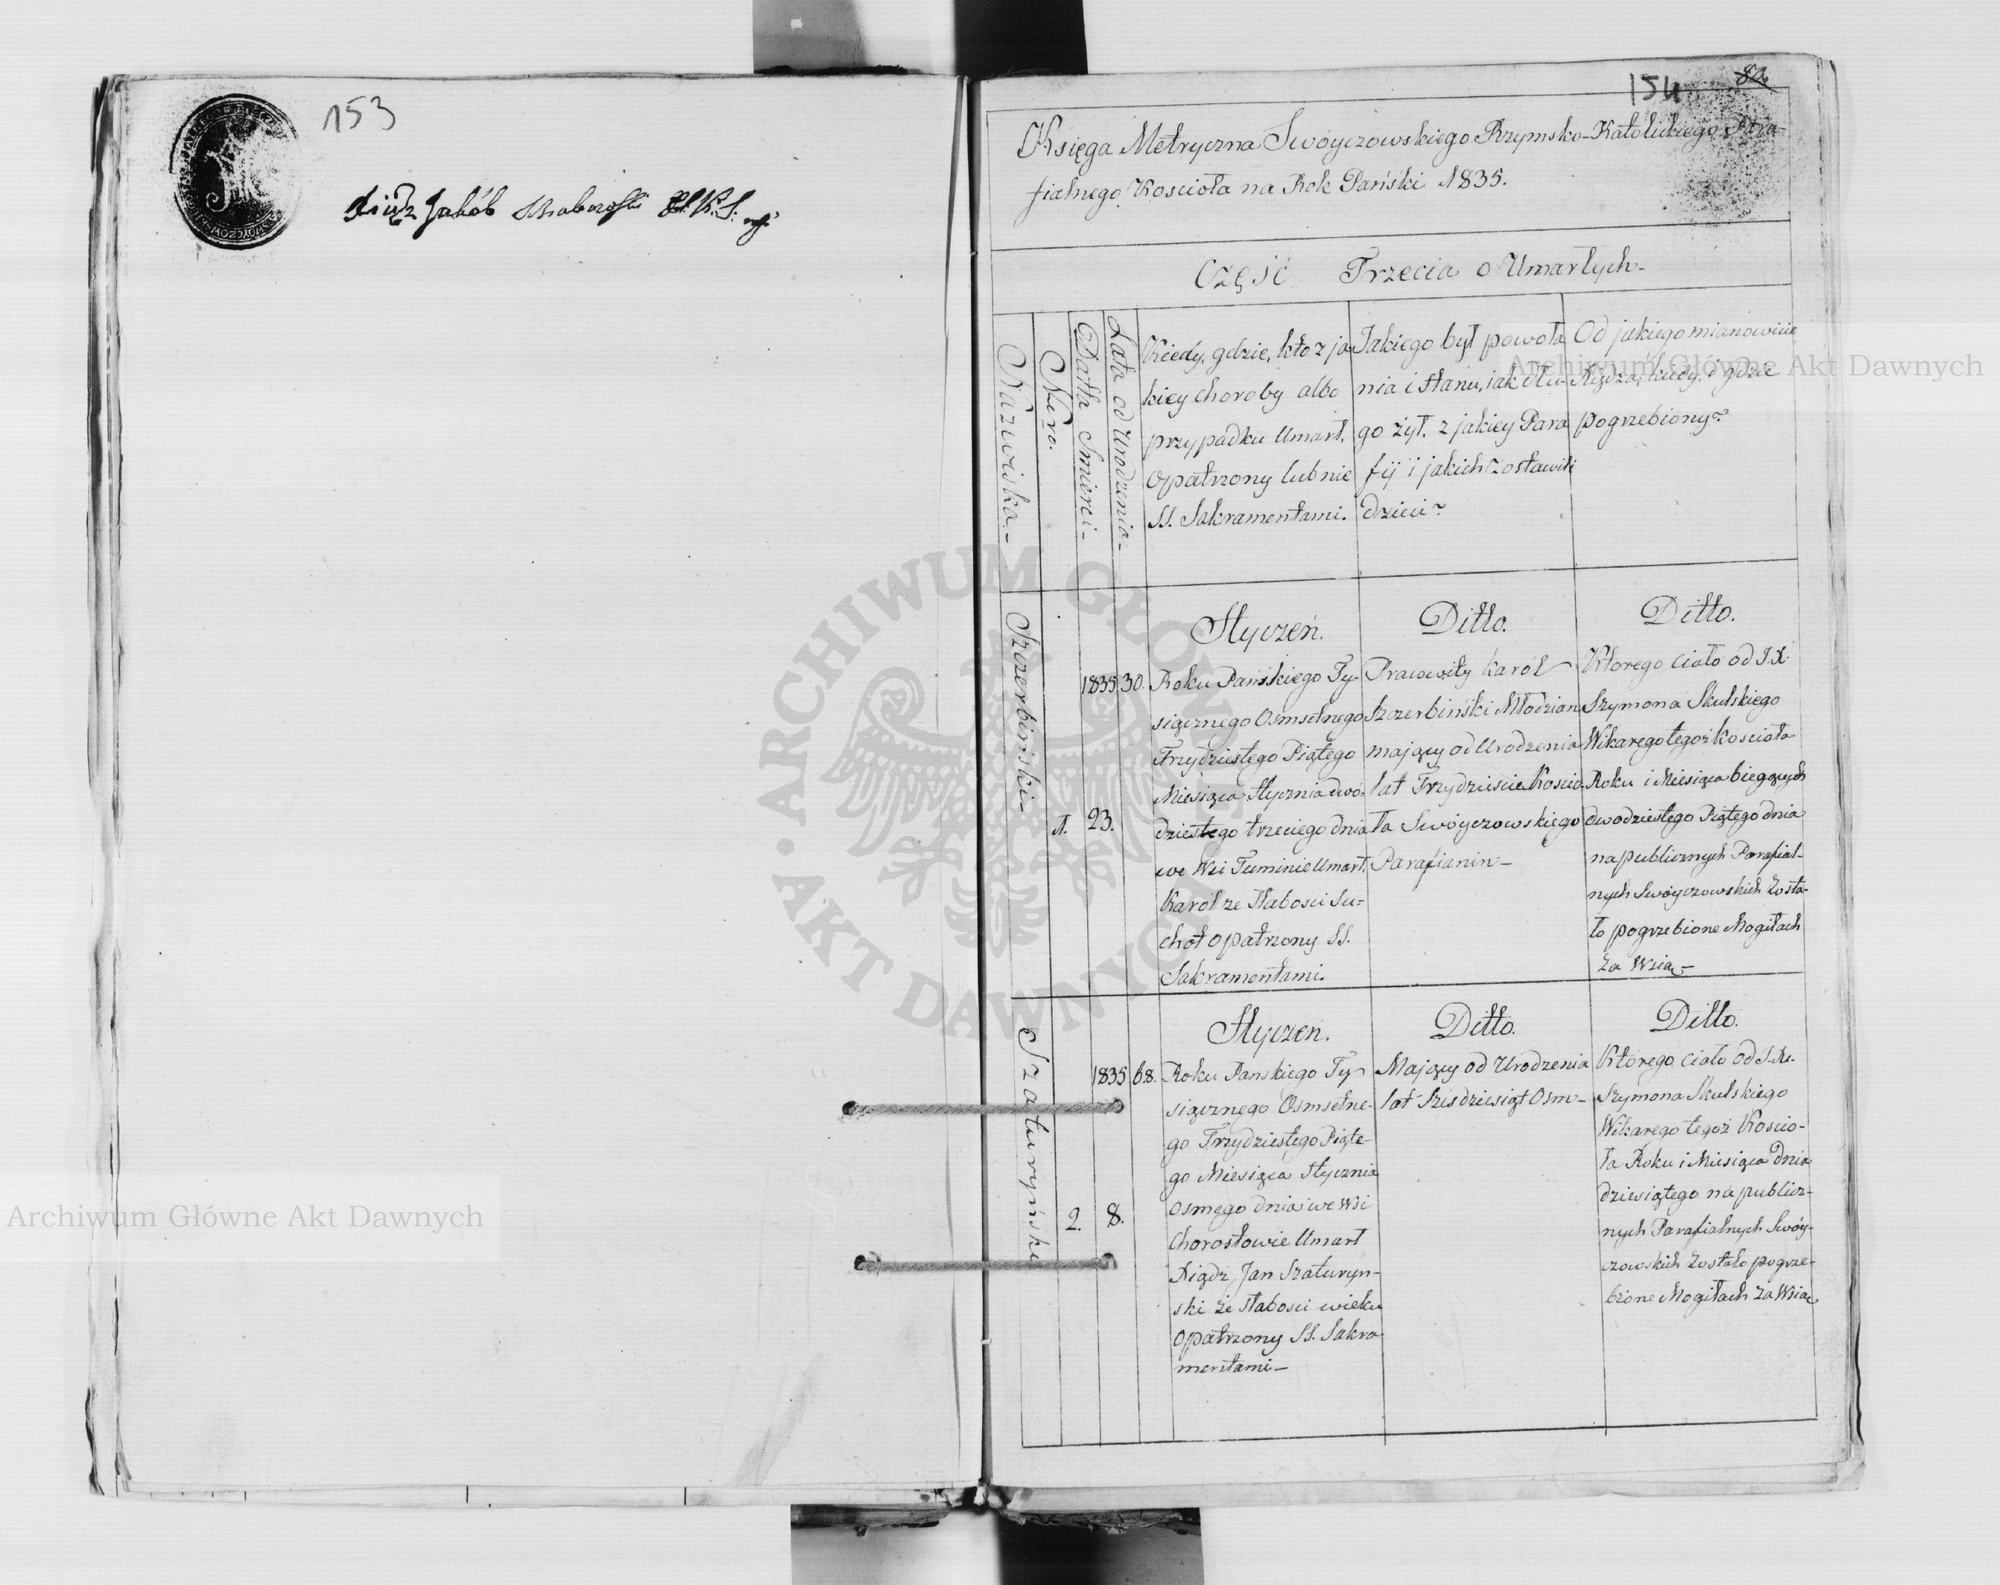 153
Xiądz Jakób
154
82
Księga Metryczna Swóyczowskiego Rzymsko-Katolickiego Para-
fialnego Kościoła na Rok Pański 1835.
Część Trzecia o Umarłych-
Nazwiska.-
Nuro.
Datta Smierci-
Lata od Urodzenia-
Kiedy, gdzie, kto z ja
kiey choroby albo
przypadku Umarł,
opatrzony lub nie
SS. Sakramentami.
Jakiego był powoła
nia i stanu, jak dłu-
go żył, z jakiey Para
fij i jakich zostawił
dzieci?
Od jakiego mianowicie
Xiędza, kiedy, i gdzie
pogrzebiony?
Szczerbiński-
1.
1835
23.
30.
Styczeń.
Roku Pańskiego Ty-
siącznego Osmsetnego
Trzydziestego Piątego
Miesiąca Stycznia dwó-
dziestego trzeciego dnia
we Wsi Tuminie Umarł,
Karól ze Słabosci Su-
chot opatrzony SS.
Sakramentami.
Ditto.
Pracowity Karól
Szczerbiński Młodzian
mający od Urodzenia
lat Trzydziescie Koscio
ła Swóyczowskiego
Parafianin-
Ditto.
Ktorego ciało od J.X.
Szymona Skulskiego
Wikarego tegoż kościoła
Roku i Miesiąca bieżących
dwodziestego Piątego dnia
na publicznych Parafial-
nych Swóyczowskich zosta-
ło pogrzebione Mogiłach
za Wsią-
Szaturyński
2.
1835
8.
68.
Styczen.
Roku Panskiego Ty-
siącznego Osmsetne-
go Trzydziestego Piąte-
go Miesiąca Stycznia
osmego dnia we Wsi
Chorostowie Umarł
Xiądz Jan Szaturyn-
ski że słabosci wieku
opatrzony SS. Sakra
mentami-
Ditto.
Mający od Urodzenia
lat Szesdziesiąt Osm-
Ditto.
Którego ciało od J.X.
Szymona Skulskiego
Wikarego tegoż Koscio-
ła Roku i Miesiąca dnia
dziesiątego na publicz-
nych Parafialnych Swóy-
czowskich zostało pogrze-
bione Mogiłach za Wsią
Archiwum Główne Akt Dawnych
Archiwum Główne Akt Dawnych
ARCHIWUM GŁÓWNE
AKT DAWNYCH